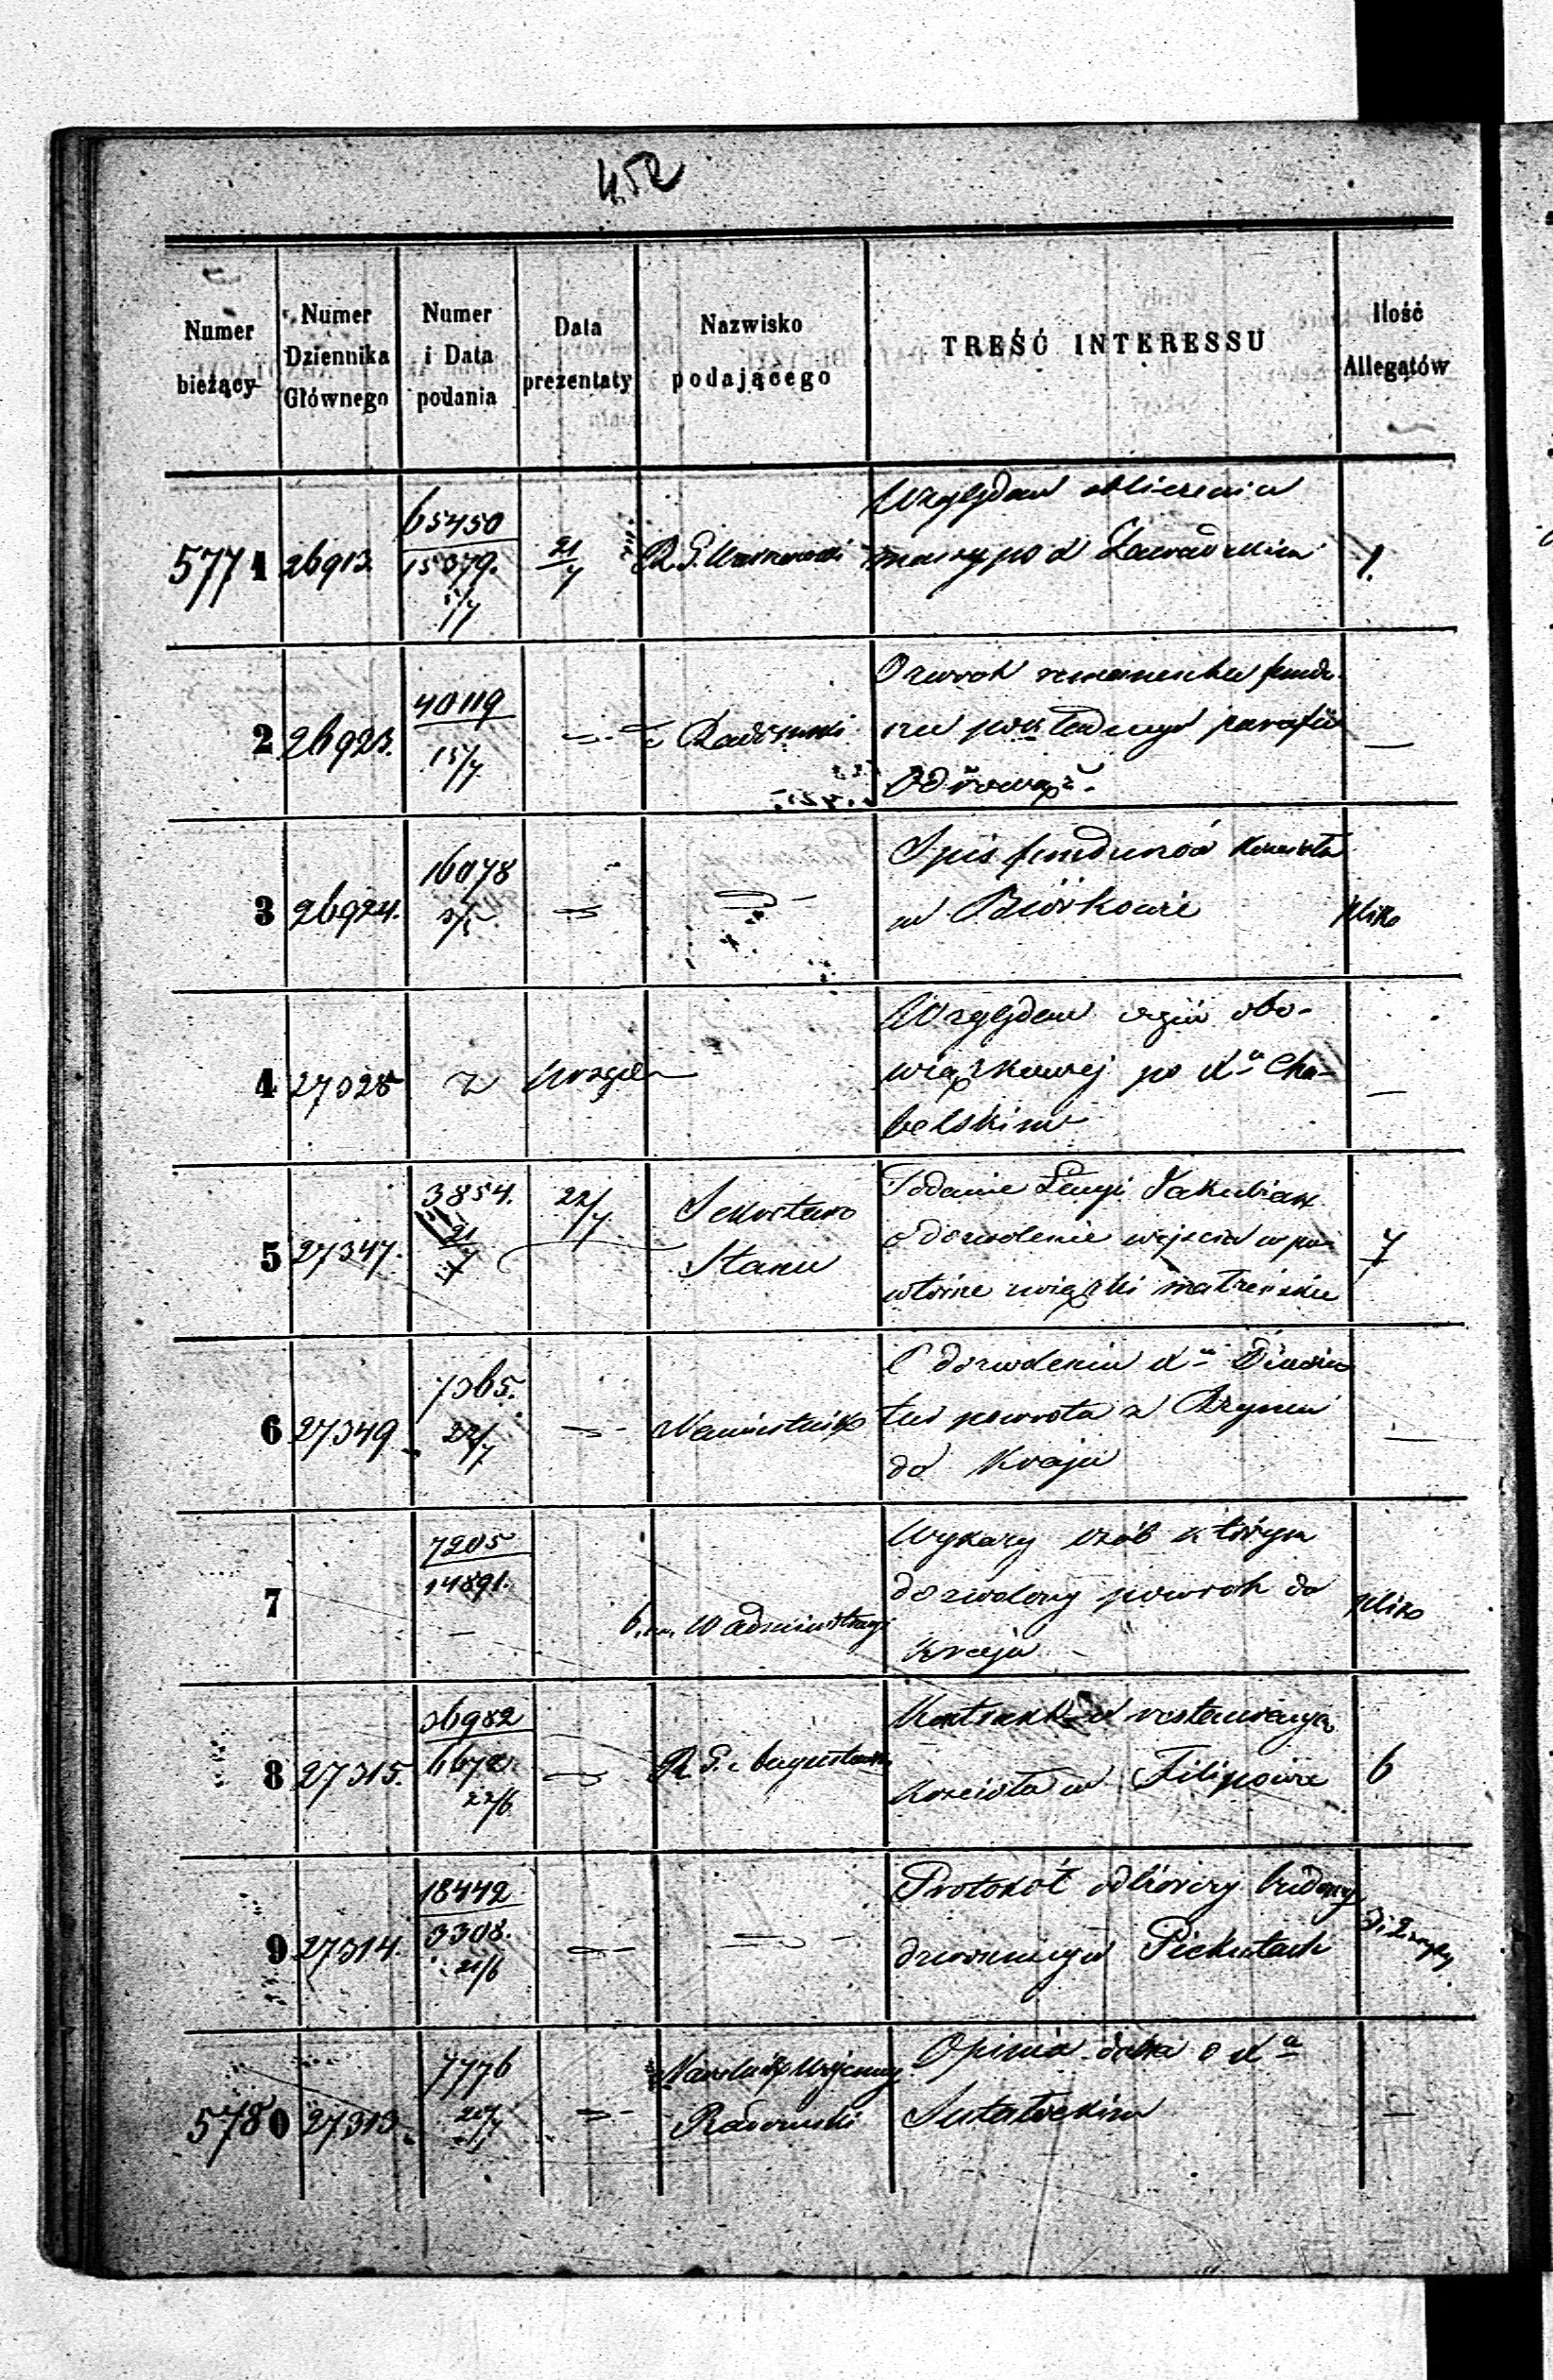 452
Numer bieżący
Numer Dziennika Głównego
Numer i Data podania
Data prezentaty
Nazwisko podającego
TREŚĆ INTERESSU
Ilość Allegatów
5771 26913. 65450 15079. 21/7 R. G. Warszawski
Względem obliczenia
massy po X Zawadzkim
1.
2 26923. 40119 15/7 Radomski
O zwrot remanentu fundu
szu pokładnego parafii
Odrowąż.
—
3 26924. 16078
Spis funduszów Kościoła
w Biórkowie
pliko
4 27028 Z Urzędu
Względem
wiązkowej po Xu Cha-
belskim
—
5 27347. 3854. 21/7 22/7 Sekretarz
Stanu
Podanie Jakubiak
o dozwolenie wejścia w po-
wtórne związki małżeńskie
7
6 27349 7365. 22/7 Namiestnik
O dozwoleniu Xu
powrotu z Rzymu
do Kraju
—
7 7205 14891. — W administracyi
Wykazy osób którym
dozwolony powrót do
Kraju
pliko
8 27315. 36982 6672. 22/6 R. G. Augustowski
Kontrakt restauracya
Kościoła w Filipowie
6
9 27314. 18442 3308. 21/6
Protokół odbiorczy budowy
dzwonnicy w Piekutach
5780 27313. 7776 20/7 Naczelnik Wojenny
Radomski
Opinia o Xu
—